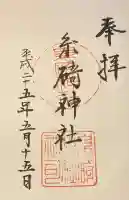 奉拝
糸碕神社
平成二十五年五月十五日